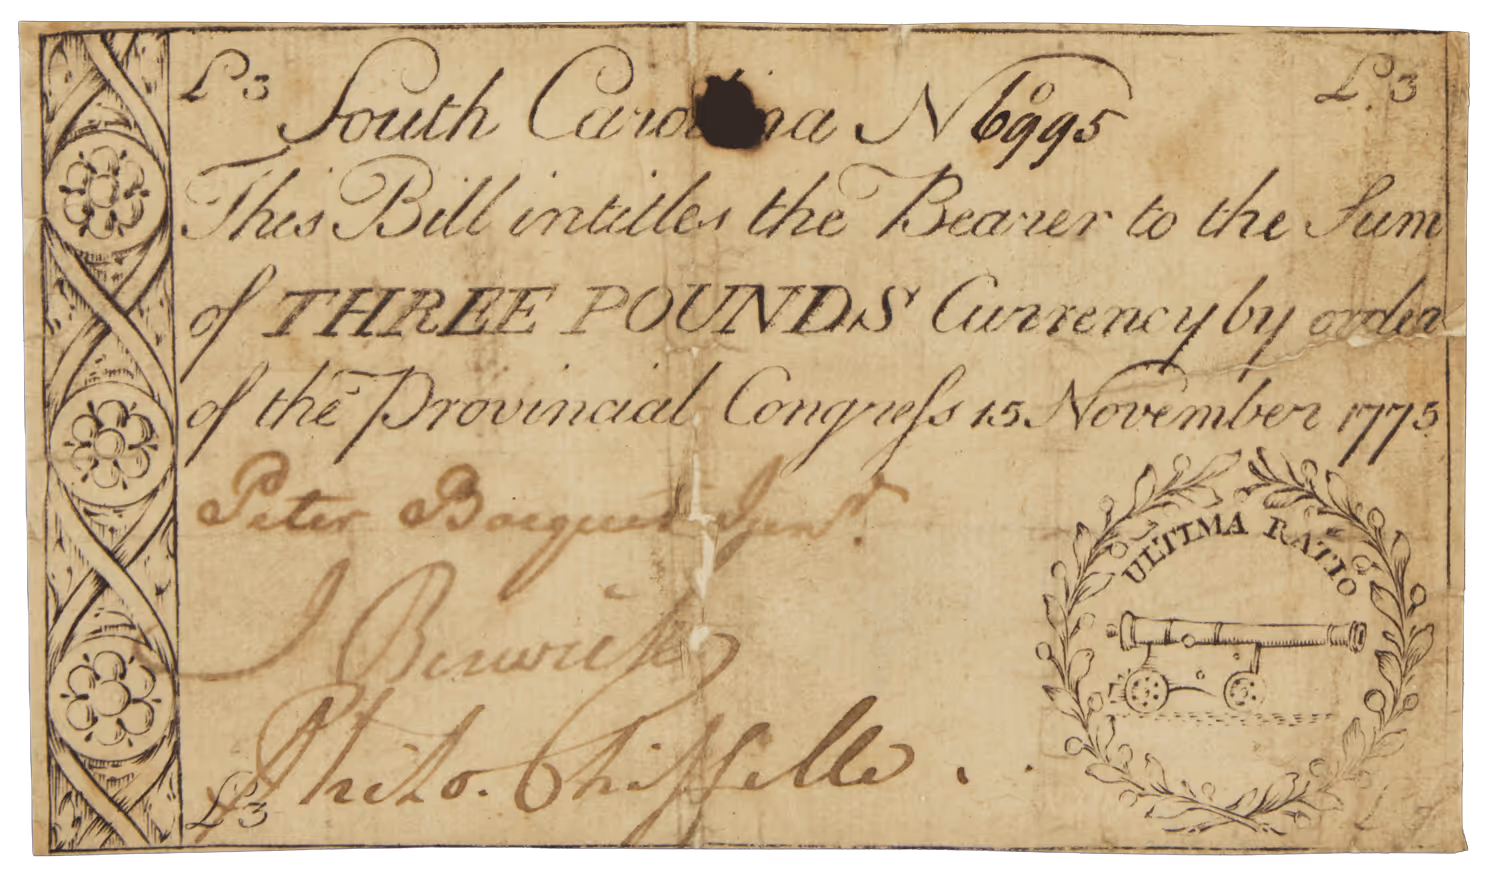 £3 South Carolina No 6995 £3
This Bill intitles the Bearer to the Sum
of THREE POUNDS Currency by order
of the Provincial Congreſs 15 November 1775
Peter Bocquet Junr.
J Berwick
Philo. Chiffelle
ULTIMA RATIO
£3